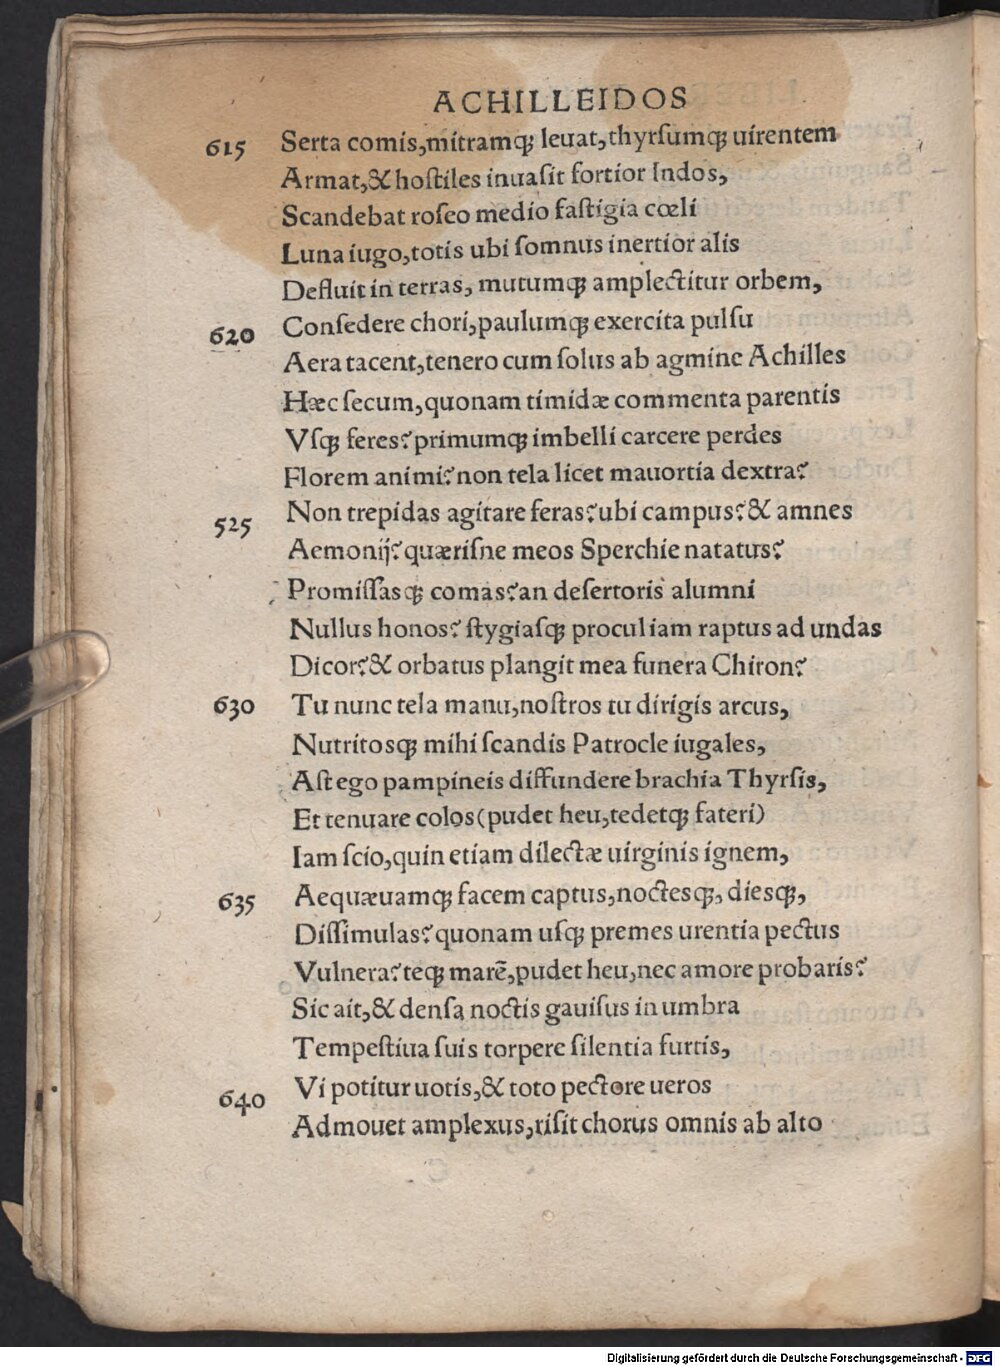 ACHILLEIDOS
615 Serta comis,mitramqꝫ leuat,thyrsumqꝫ uirentem
Armat,&hoſtiles inuaſit fortior Indos,
Scandebat roſeo medio faſtigia cœli
Luna iugo,totis ubi ſomnus inertior alis
Defluit in terras, mutumqꝫ amplectitur orbem,
620 Conſedere chori,paulumqꝫ exercita pulſu
Aera tacent,tenero cum ſolus ab agmine Achilles
Hæc ſecum,quonam timidæ commenta parentis
Vſqꝫ feres?primumqꝫ imbelli carcere perdes
Florem animi?non tela licet mauortia dextra?
525 Non trepidas agitare feras?ubi campus?& amnes
Aemonij?quæriſne meos Sperchie natatus?
Promiſſasqꝫ comas?an deſertoris alumni
Nullus honos? ſtygiaſqꝫ procul iam raptus ad undas
Dicor?& orbatus plangit mea funera Chiron?
630 Tu nunc tela manu,noſtros tu dirigis arcus,
Nutritosqꝫ mihi ſcandis Patrocle iugales,
Aſt ego pampineis diffundere brachia Thyrſis,
Et tenuare colos(pudet heu,tedetqꝫ fateri)
Iam ſcio,quin etiam dilectæ uirginis ignem,
635 Aequæuamqꝫ facem captus,noctesqꝫ, diesqꝫ,
Diſſimulas?quonam uſqꝫ premes urentia pectus
Vulnera?teqꝫ marē,pudet heu,nec amore probaris?
Sic ait,& denſa noctis gauiſus in umbra
Tempeſtiua ſuis torpere ſilentia furtis,
640 Vi potitur uotis,& toto pectore ueros
Admouet amplexus,riſit chorus omnis ab alto
Digitalisierung gefördert durch die Deutsche Forschungsgemeinschaft - DFG